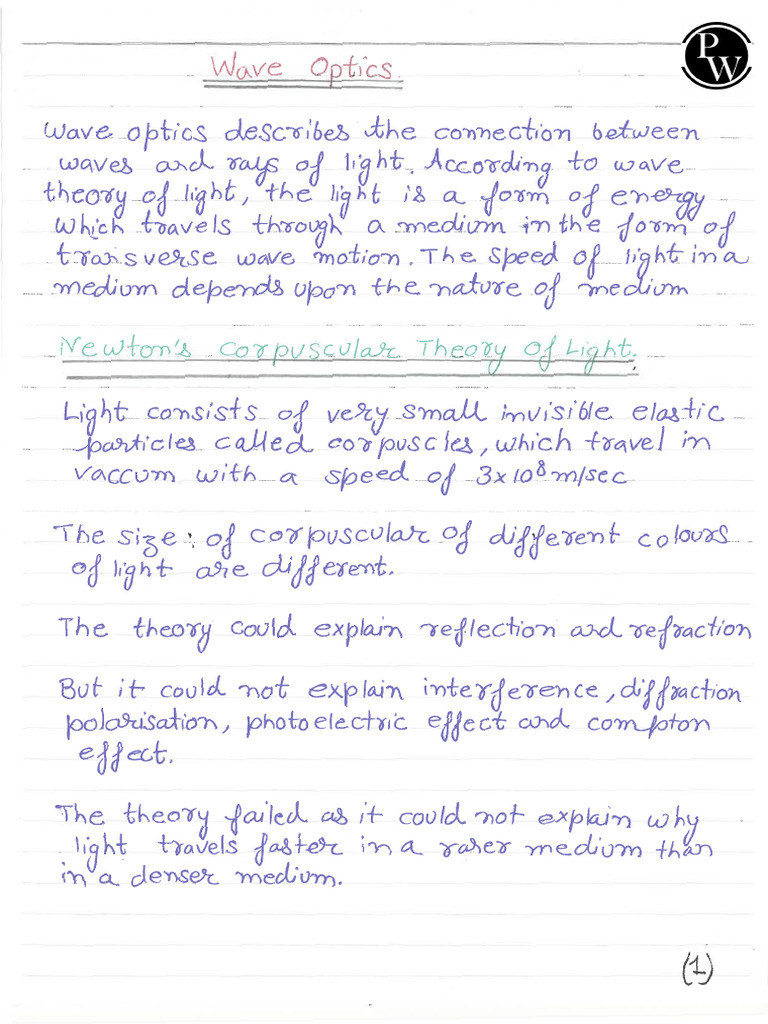 PW
Wave Optics
Wave optics describes the connection between
waves and rays of light. According to wave
theory of light, the light is a form of energy
which travels through a medium in the form of
transverse wave motion. The speed of light in a
medium depends upon the nature of medium
Newton's Corpuscular Theory Of Light.
Light consists of very small invisible elastic
particles called corpuscles, which travel in
vaccum with a speed of 3x10⁸m/sec
The size : of corpuscular of different colours
of light are different.
The theory could explain reflection and refraction
But it could not explain interference, diffraction
polarisation, photoelectric effect and compton
effect.
The theory failed as it could not explain why
light travels faster in a rarer medium than
in a denser medium.
(1)